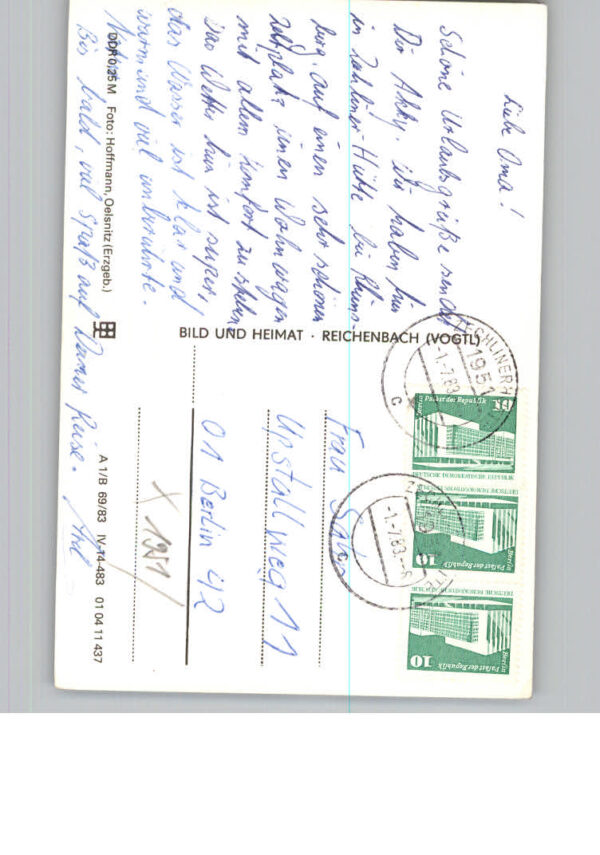 Liebe Oma!
Schöne Urlaubsgrüße sendet
Dir Anky. Wir haben hier
in Zechliner-Hütte bei Rheins-
berg, auf einen sehr schönen
Zeltplatz einen Wohnwagen
mit allem Komfort zu stehen.
Das Wetter hier ist super,
das Wasser ist klar und
warm und viel unberührte
Bis bald, viel Spaß auf Deiner Reise.
DDR 0,25 M Foto: Hoffmann, Oelsnitz (Erzgeb.)
BILD UND HEIMAT · REICHENBACH (VOGTL)
A 1/B 69/83 IV-14-483 01 04 11 437
Frau
Upstallweg 11
01 Berlin 42
X 1981
ZECHLINERH
1951
-1.-7.83
c
-1.-7.83.-8
Palast der Republik
Berlin
10
DEUTSCHE DEMOKRATISCHE REPUBLIK
Palast der Republik
Berlin
10
DEUTSCHE DEMOKRATISCHE REPUBLIK
Palast der Republik
Berlin
10
DEUTSCHE DEMOKRATISCHE REPUBLIK